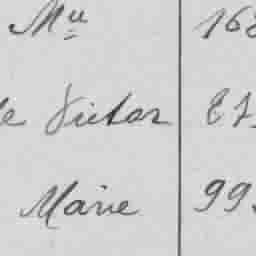 Mu 168
le Victor 87
Marie 99